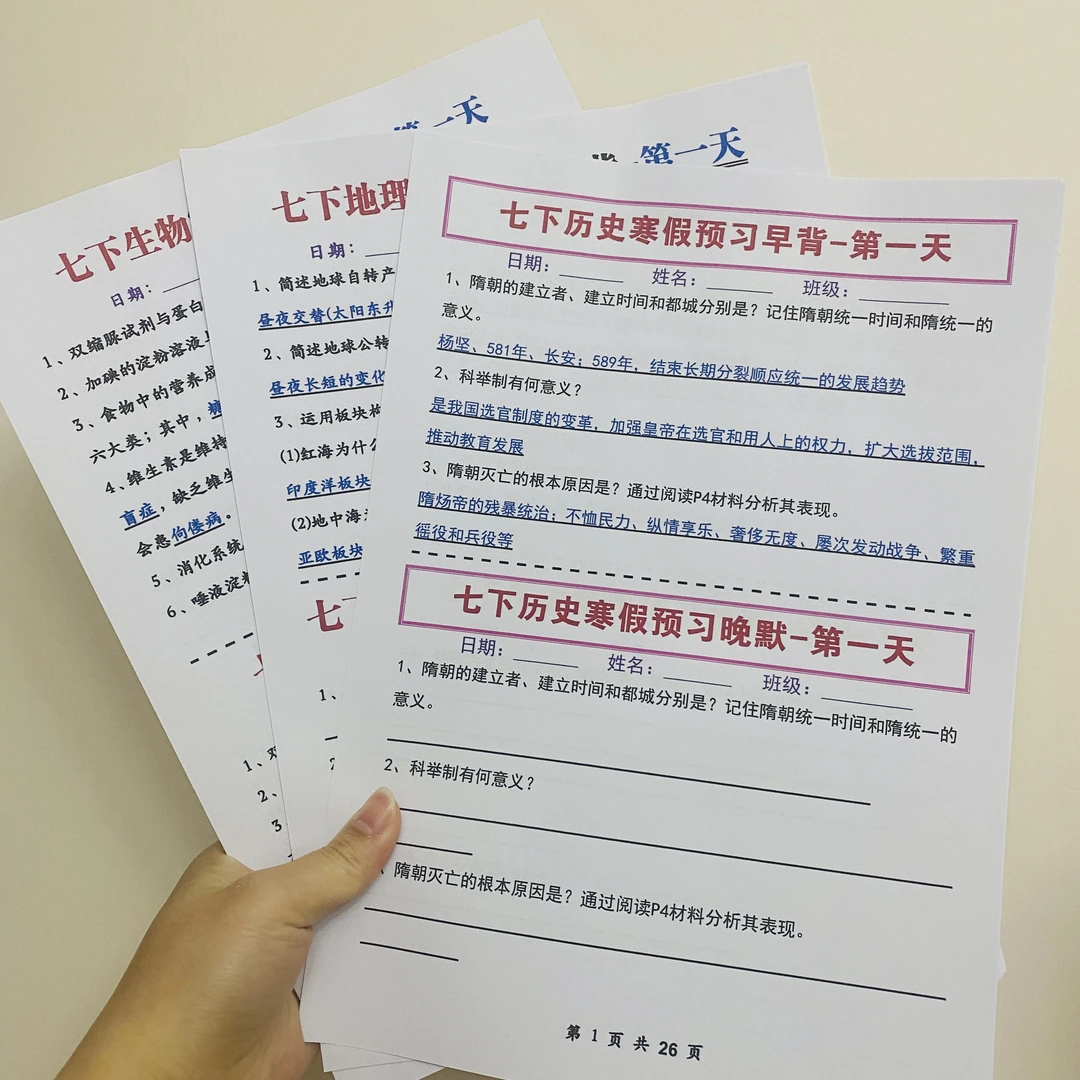 第一天
第一天
七下生物
日期：
1、双缩脲试剂与蛋白
2、加碘的淀粉溶液
3、食物中的营养成
六大类；其中，糖
4、维生素是维持
盲症，缺乏维生
会患佝偻病。
5、消化系统
6、唾液淀粉
1、双
2、
3
七下地理
日期：
1、简述地球自转产
昼夜交替(太阳东升
2、简述地球公转
昼夜长短的变化
3、运用板块构
(1)红海为什么
印度洋板块
(2)地中海
亚欧板块
七下
1、
2
七下历史寒假预习早背-第一天
日期： 姓名： 班级：
1、隋朝的建立者、建立时间和都城分别是？记住隋朝统一时间和隋统一的
意义。
杨坚、581年、长安；589年，结束长期分裂顺应统一的发展趋势
2、科举制有何意义？
是我国选官制度的变革，加强皇帝在选官和用人上的权力，扩大选拔范围，
推动教育发展
3、隋朝灭亡的根本原因是？通过阅读P4材料分析其表现。
隋炀帝的残暴统治；不恤民力、纵情享乐、奢侈无度、屡次发动战争、繁重
徭役和兵役等
七下历史寒假预习晚默-第一天
日期： 姓名： 班级：
1、隋朝的建立者、建立时间和都城分别是？记住隋朝统一时间和隋统一的
意义。
2、科举制有何意义？
、隋朝灭亡的根本原因是？通过阅读P4材料分析其表现。
第 1 页 共 26 页